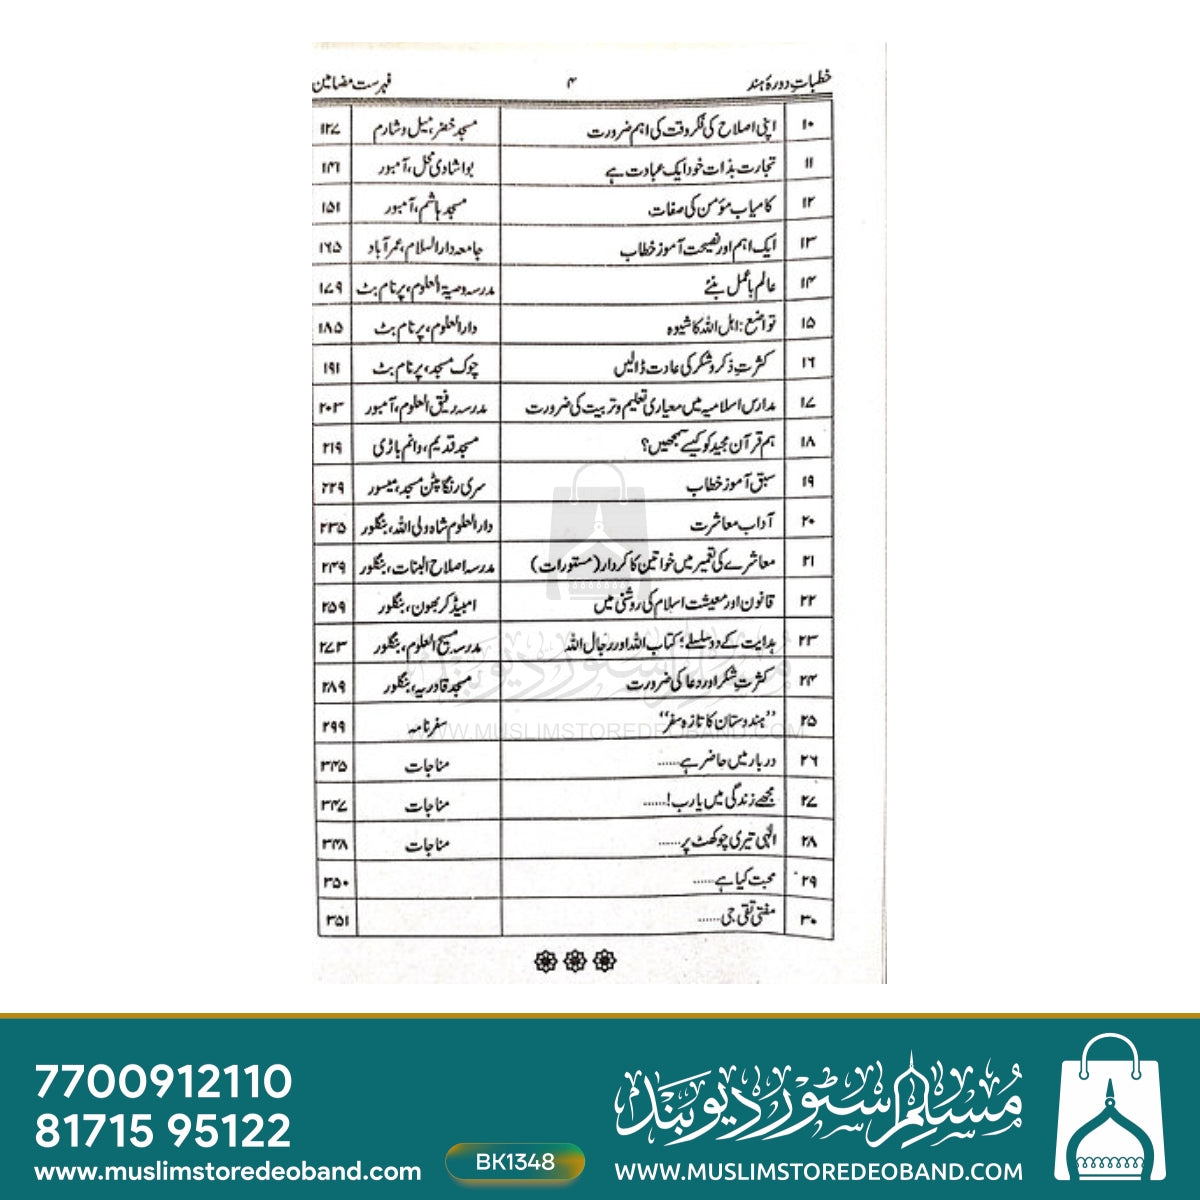 خطباتِ دورۂ ہند ۴ فہرست مضامین
۱۰ اپنی اصلاح کی فکر وقت کی اہم ضرورت مسجد خضر، میل وشارم ۱۲۷
۱۱ تجارت بذات خود ایک عبادت ہے بوا شادی محل، آمبور ۱۴۱
۱۲ کامیاب مؤمن کی صفات مسجد ہاشم، آمبور ۱۵۱
۱۳ ایک اہم اور نصیحت آموز خطاب جامعہ دارالسلام، عمرآباد ۱۶۵
۱۴ عالم باعمل بنئے مدرسہ وصیۃ العلوم، پرنام بٹ ۱۷۹
۱۵ تواضع: اہل اللہ کا شیوہ دارالعلوم، پرنام بٹ ۱۸۵
۱۶ کثرتِ ذکر وشکر کی عادت ڈالیں چوک مسجد، پرنام بٹ ۱۹۱
۱۷ مدارس اسلامیہ میں معیاری تعلیم وتربیت کی ضرورت مدرسہ رفیق العلوم، آمبور ۲۰۳
۱۸ ہم قرآن مجید کو کیسے سمجھیں؟ مسجد قدیم، وانم باڑی ۲۱۹
۱۹ سبق آموز خطاب سری رنگا پٹن مسجد، میسور ۲۲۹
۲۰ آداب معاشرت دارالعلوم شاہ ولی اللہ، بنگلور ۲۳۵
۲۱ معاشرے کی تعمیر میں خواتین کا کردار (مستورات) مدرسہ اصلاح البنات، بنگلور ۲۴۹
۲۲ قانون اور معیشت اسلام کی روشنی میں امبیڈکر بھون، بنگلور ۲۵۹
۲۳ ہدایت کے دو سلسلے؛ کتاب اللہ اور رجال اللہ مدرسہ مسیح العلوم، بنگلور ۲۷۳
۲۴ کثرتِ شکر اور دعا کی ضرورت مسجد قادریہ، بنگلور ۲۸۹
۲۵ ”ہندوستان کا تازہ سفر“ سفرنامہ ۲۹۹
۲۶ دربار میں حاضر ہے...... مناجات ۳۴۵
۲۷ مجھے زندگی میں یا رب!...... مناجات ۳۴۷
۲۸ الٰہی تیری چوکھٹ پر...... مناجات ۳۴۸
۲۹ محبت کیا ہے...... ۳۵۰
۳۰ مفتی تقی جی...... ۳۵۱
مسلم سٹور دیوبند
WWW.MUSLIMSTOREDEOBAND.COM
7700912110
81715 95122
www.muslimstoredeoband.com
BK1348
مسلم سٹور دیوبند
WWW.MUSLIMSTOREDEOBAND.COM